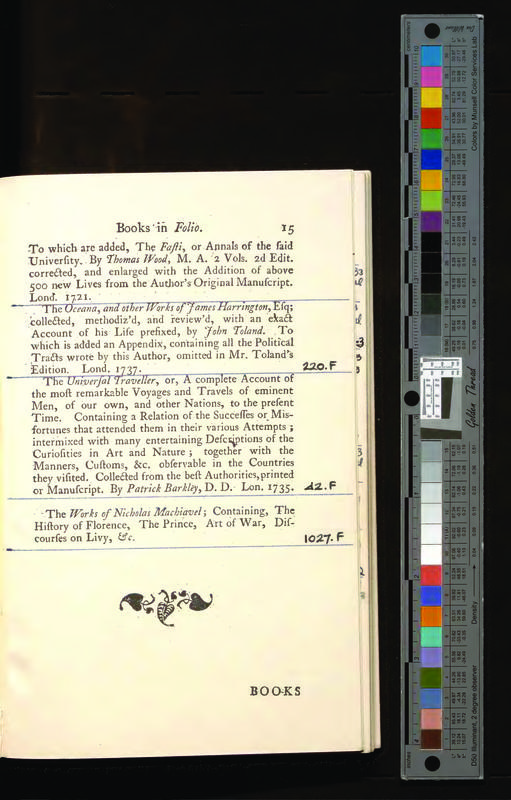 Books in Folio. 15
To which are added, The Faſti, or Annals of the ſaid
Univerſity. By Thomas Wood, M. A. 2 Vols. 2d Edit.
corrected, and enlarged with the Addition of above
500 new Lives from the Author's Original Manuſcript.
Lond. 1721.
The Oceana, and other Works of James Harrington, Eſq;
collected, methodiz'd, and review'd, with an exact
Account of his Life prefixed, by John Toland. To
which is added an Appendix, containing all the Political
Tracts wrote by this Author, omitted in Mr. Toland's
Edition. Lond. 1737. 220.F
The Univerſal Traveller, or, A complete Account of
the moſt remarkable Voyages and Travels of eminent
Men, of our own, and other Nations, to the preſent
Time. Containing a Relation of the Succeſſes or Miſ-
fortunes that attended them in their various Attempts;
intermixed with many entertaining Deſcriptions of the
Curioſities in Art and Nature; together with the
Manners, Cuſtoms, &c. obſervable in the Countries
they viſited. Collected from the beſt Authorities, printed
or Manuſcript. By Patrick Barkley, D. D. Lon. 1735. 42.F
The Works of Nicholas Machiavel; Containing, The
Hiſtory of Florence, The Prince, Art of War, Diſ-
courſes on Livy, &c. 1027.F
BOOKS
Colors by Munsell Color Services Lab
Golden Thread
Density
D50 Illuminant, 2 degree observer
centimeters
inches